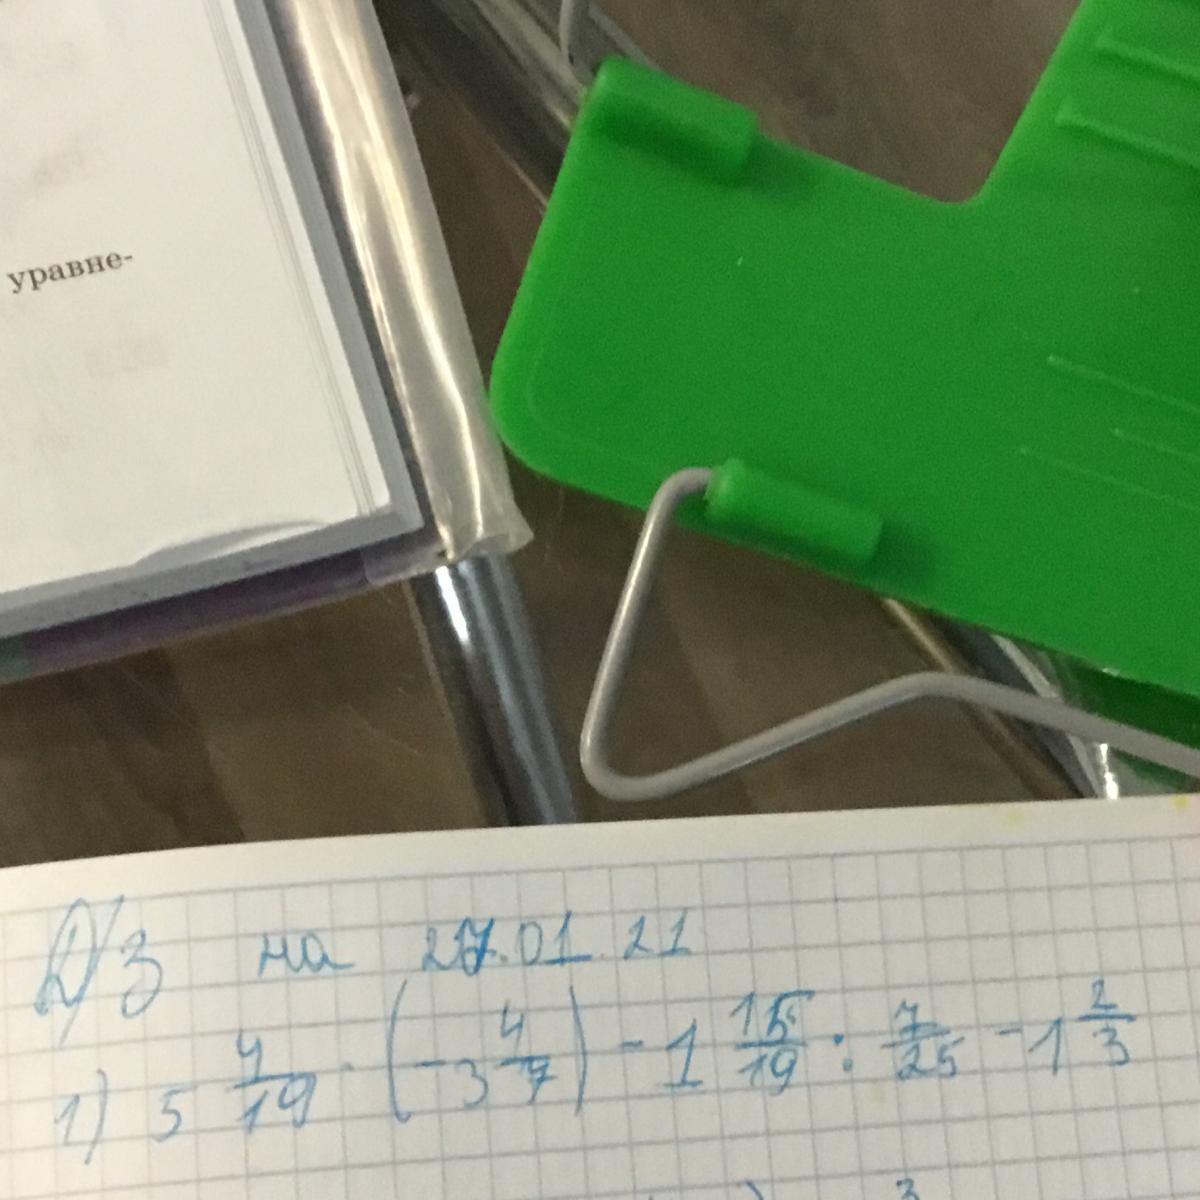 уравне-
Д/з на 27.01.21
1) 5 4/19 · (-3 4/7) - 1 15/19 : 7/25 - 1 2/3